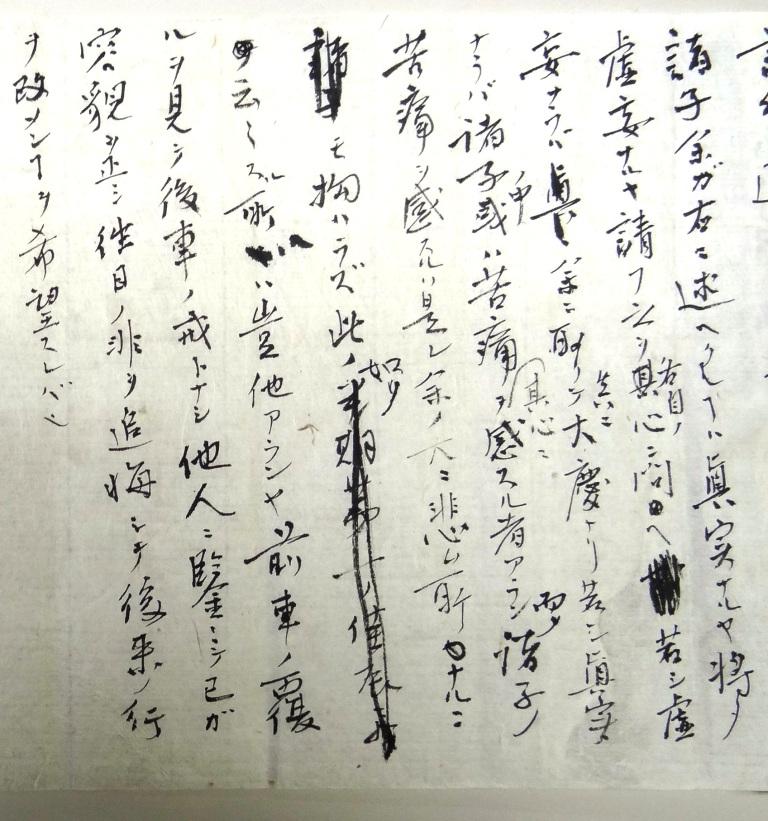 諸子余ガ右ニ述ヘタル「ハ眞実ナルヤ将タ
虚妄ナルヤ請フ之ヲ各自ノ其心ニ問ヘ 若シ虚
妄ナラバ眞ニ余ニ取リテ大慶ナリ若シ眞実
ナラバ諸子中或ハ眞心ニ苦痛ヲ感スル者アラン 諸子ノ
苦痛ヲ感スルハ是レ余ノ大ニ悲ム所ナルニ
モ拘ハラズ此ノ如ク
云々スル所ハ豈他アランヤ前車ノ覆
ルヲ見テ後車ノ戒トナシ他人ニ鑒ミテ己ガ
容貌ヲ正シ往日ノ非ヲ追悔シテ後来ノ行
ヲ改メン「ヲ希望スレバ